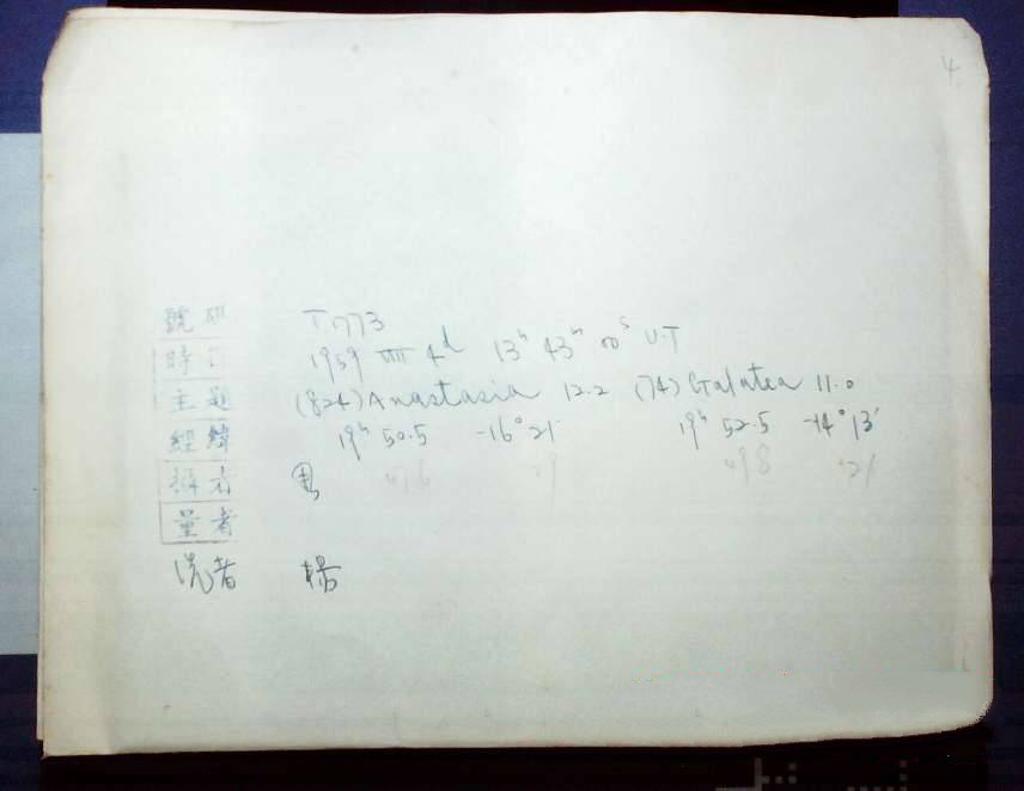 4
號碼 T773
時 1959 VIII 4d 13h 43m 00s U.T
主題 (824) Anastasia 12.2 (74) Galatea 11.0
經緯 19h 50.5 -16° 21' 19h 52.5 -14° 13'
攝者
量者
洗者 楊